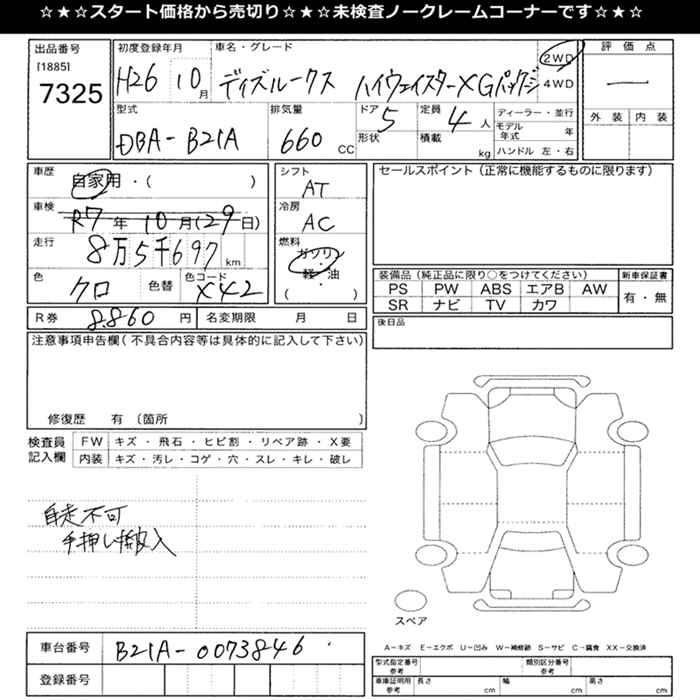 ☆★☆スタート価格から売切り☆★☆未検査ノークレームコーナーです☆★☆
出品番号
[1885]
7325
初度登録年月
H26 10月
車名・グレード
ディズルークス ハイウェイスターXGパッケジ
2WD
4WD
評価点
一
外装 内装
型式
DBA-B21A
排気量
660 CC
ドア 5
形状
定員 4 人
積載 kg
ディーラー・並行
モデル年式 年
ハンドル 左・右
車歴
自家用・( )
車検
R7年10月(29日)
走行
8万5千697 km
色
クロ
色替
色コード
X42
シフト
AT
冷房
AC
燃料
ガソリン・軽・油
( )
セールスポイント(正常に機能するものに限ります)
装備品(純正品に限り○をつけてください)
PS PW ABS エアB AW
SR ナビ TV カワ
新車保証書
有・無
R券 8.860 円
名変期限 月 日
後日品
注意事項申告欄(不具合内容等は具体的に記入して下さい)
修復歴 有〔箇所
検査員
記入欄
FW キズ・飛石・ヒビ割・リペア跡・X要
内装 キズ・汚レ・コゲ・穴・スレ・キレ・破レ
自走不可
手押し搬入
スペア
車台番号 B21A-0073846
登録番号
A-キズ E-エクボ U-凹み W-補修跡 S-サビ C-腐食 XX-交換済
型式指定番号参考
類別区分番号参考
車庫証明用参考
長さ cm 幅 cm 高さ cm